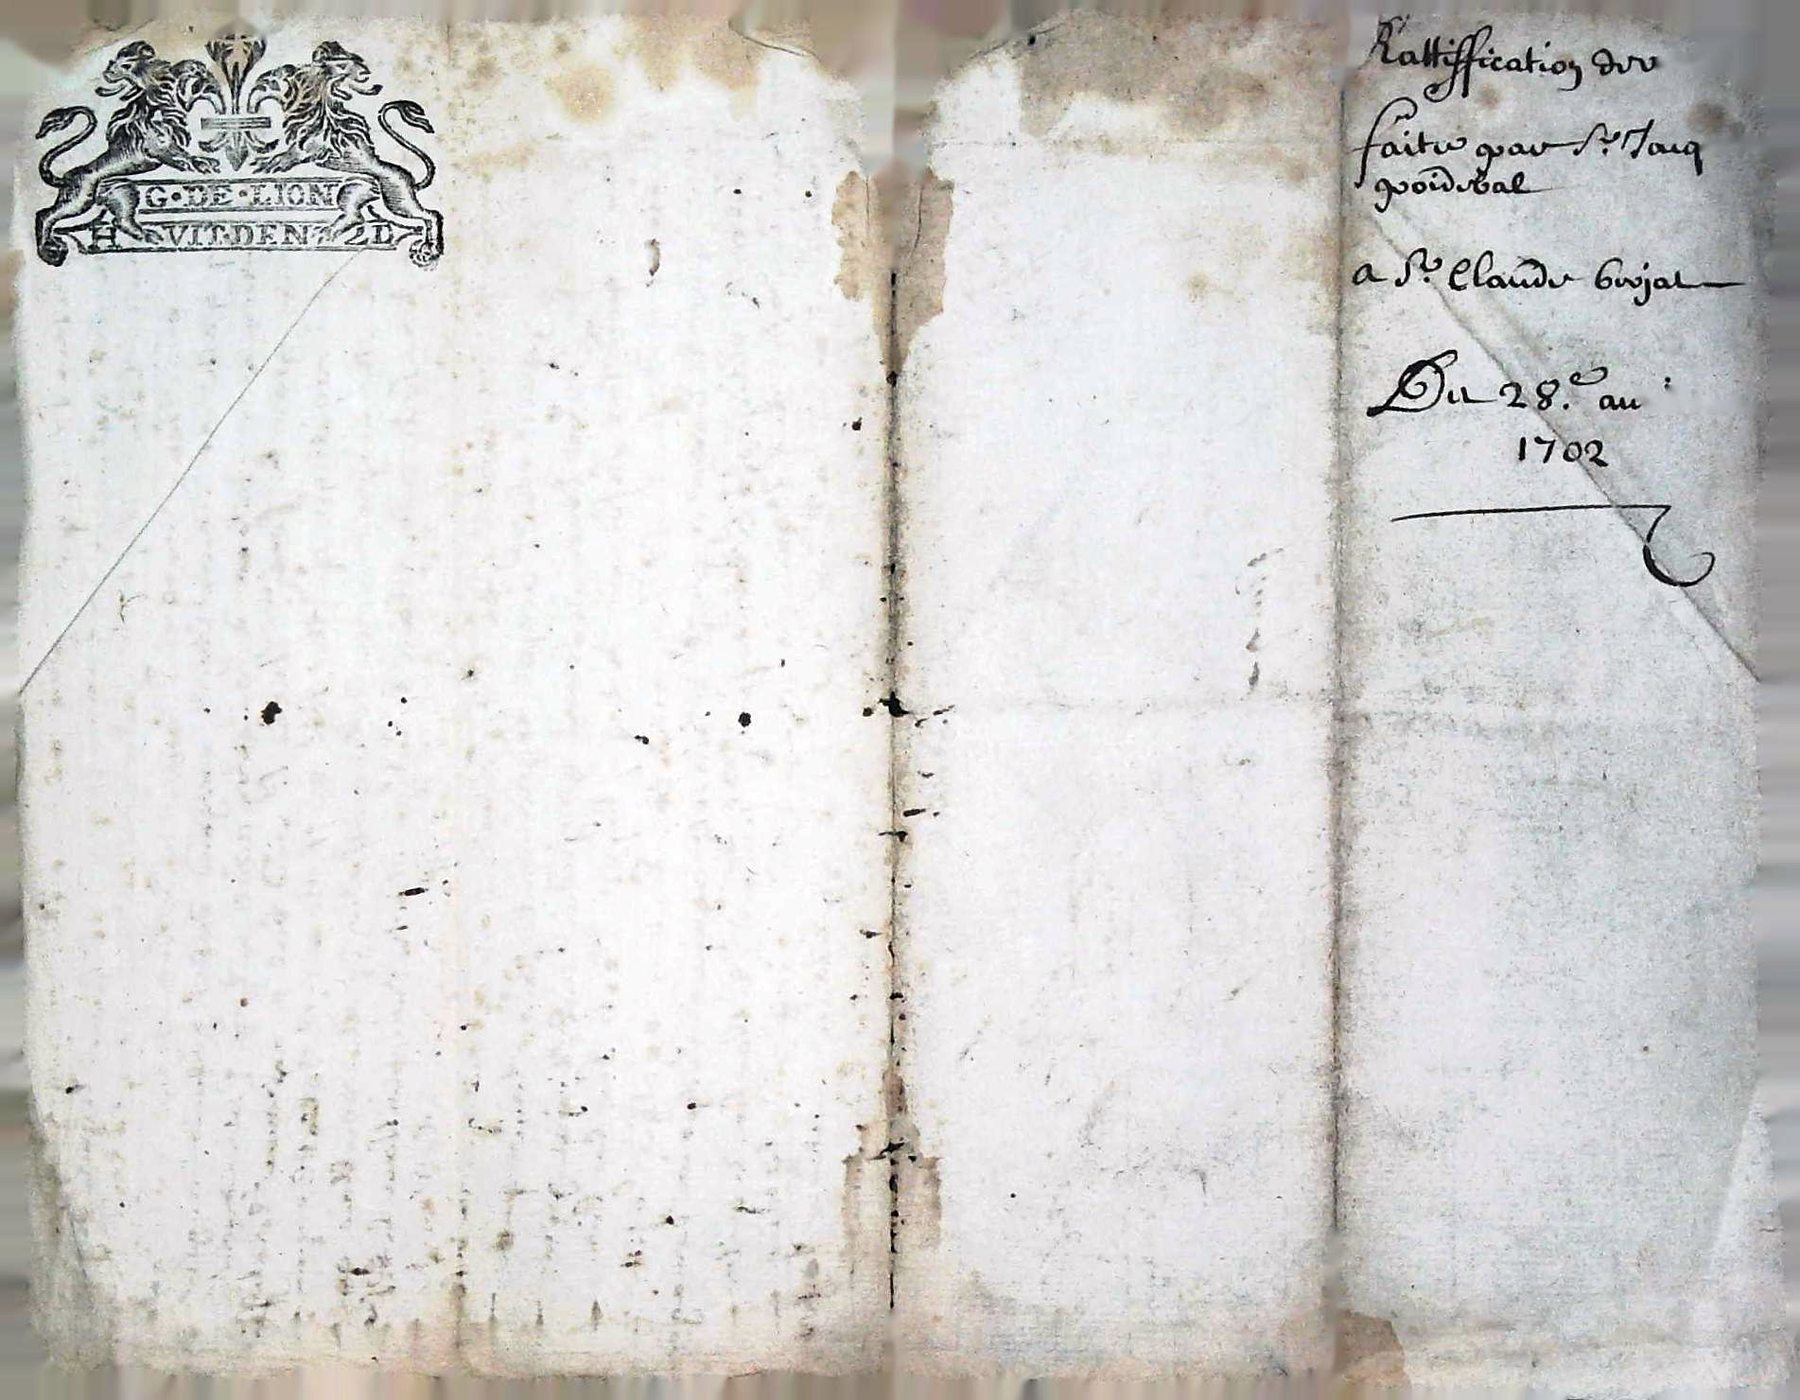 G·DE·LION
HVIT·DEN 2D
Rattiffication de
faite par Sr. Jacq
poideval
a Sr. Claude
Du 28.e au
1702